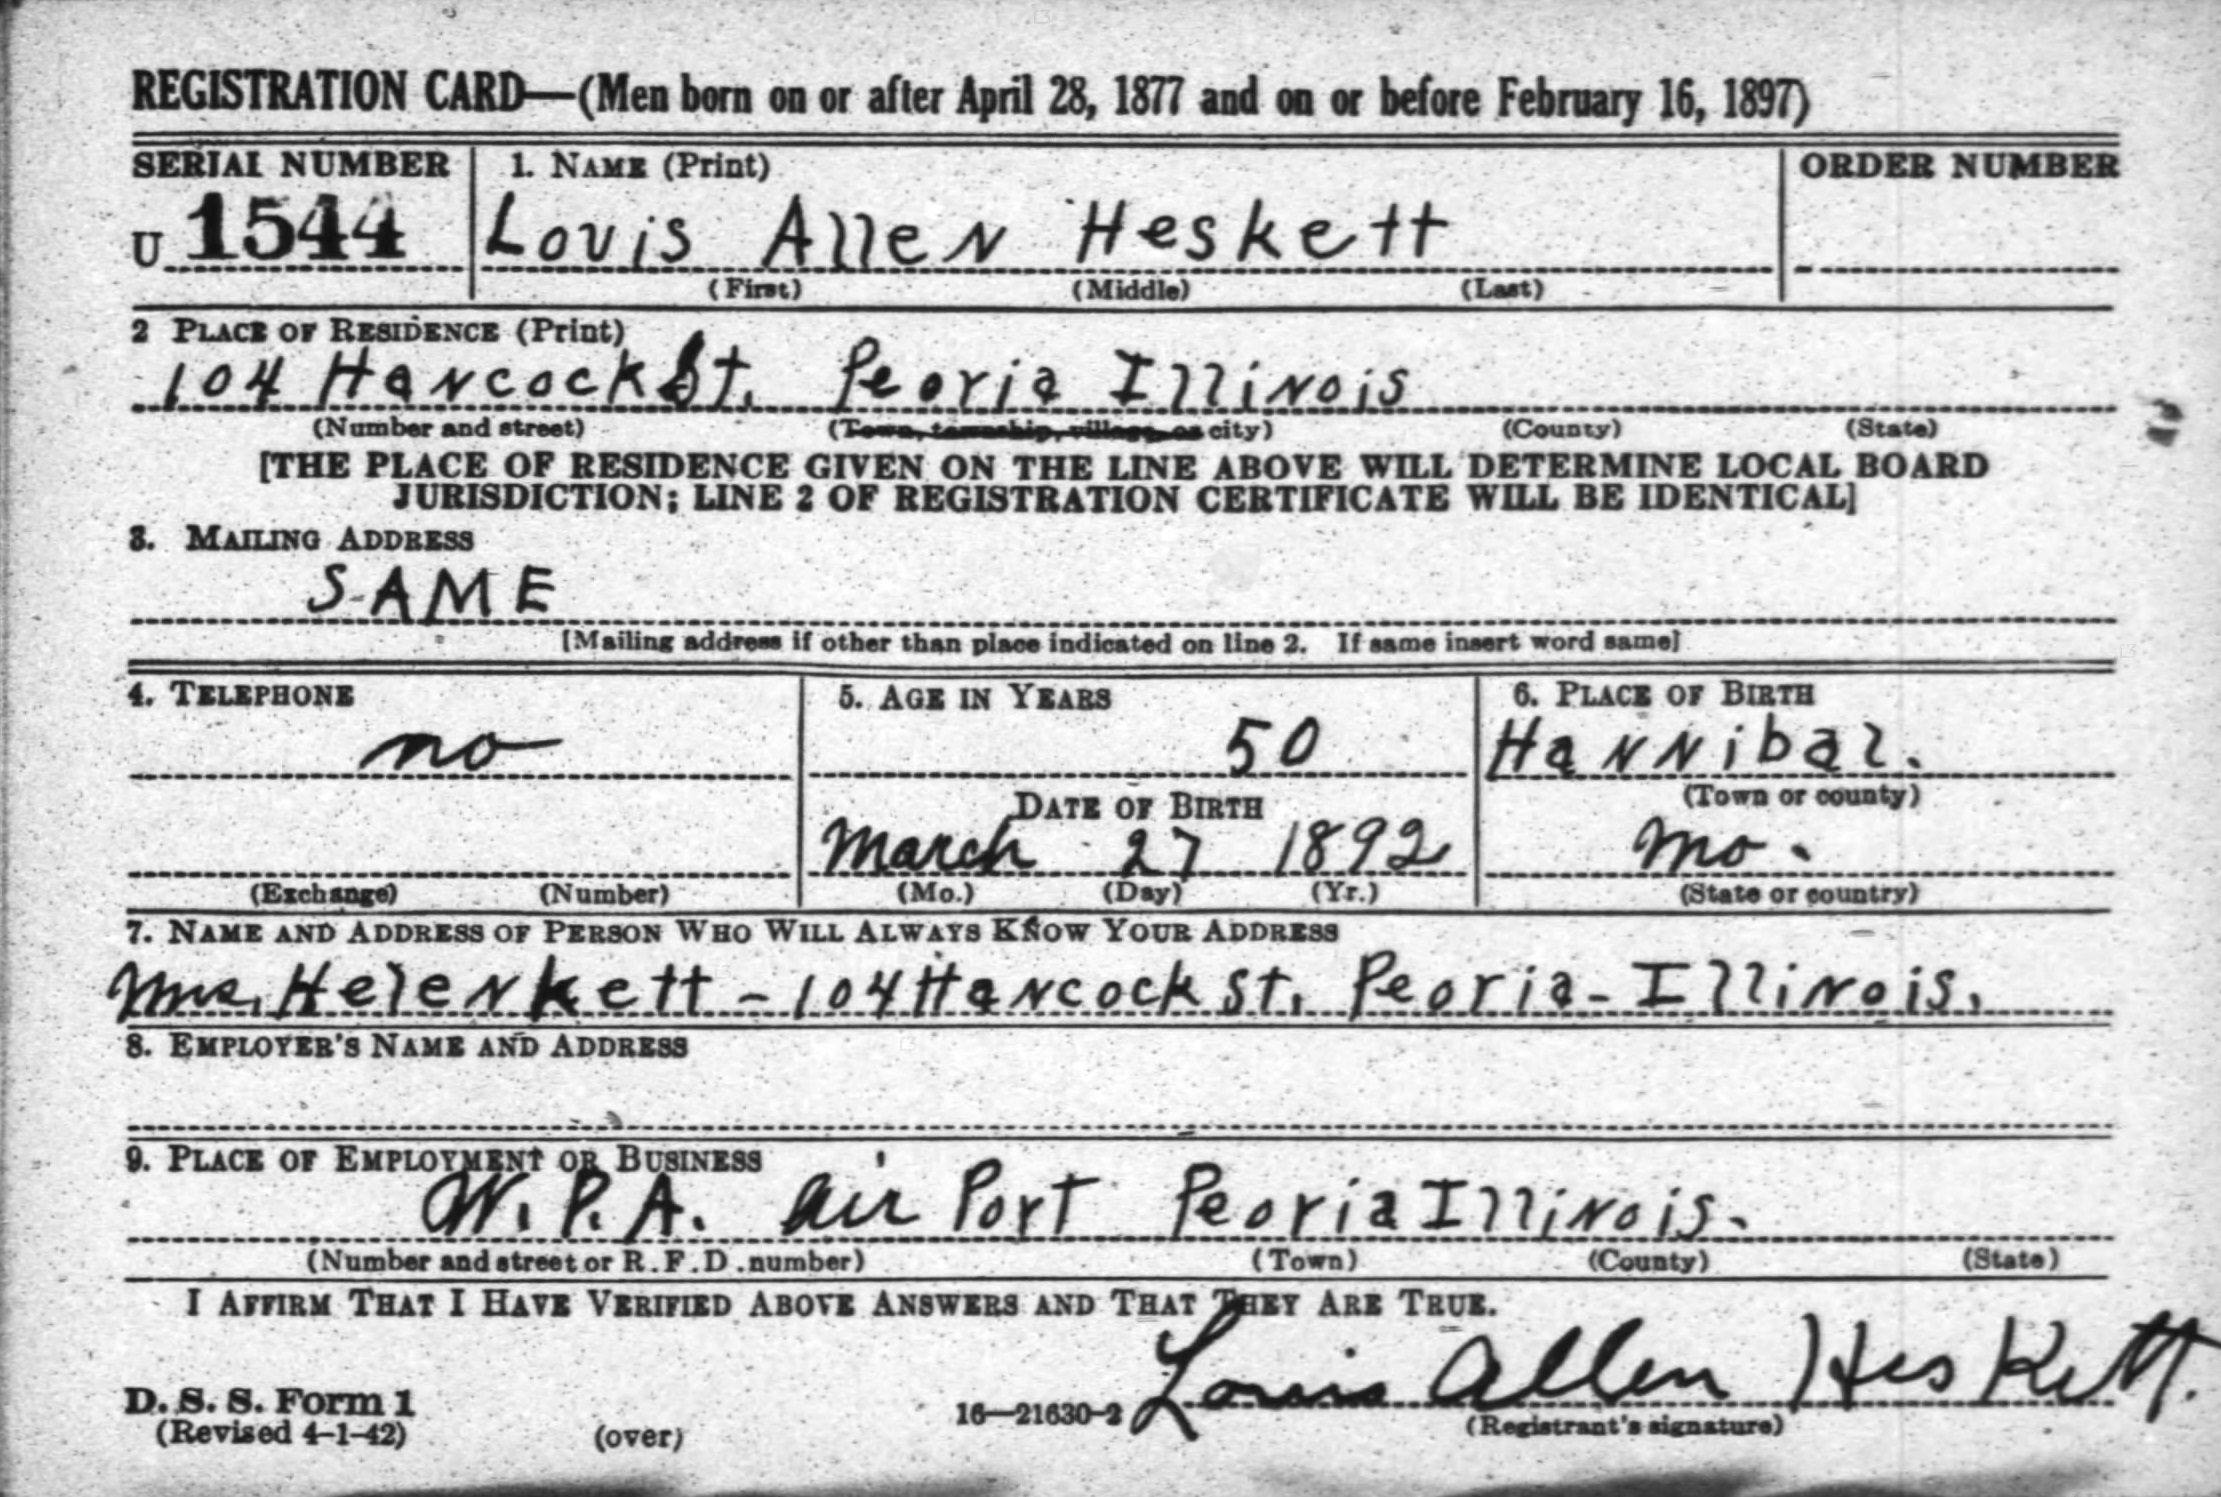 REGISTRATION CARD—(Men born on or after April 28, 1877 and on or before February 16, 1897)
SERIAL NUMBER 1. NAME (Print) ORDER NUMBER
U 1544 Louis Allen Heskett
(First) (Middle) (Last)
2 PLACE OF RESIDENCE (Print)
104 Hancock St. Peoria Illinois
(Number and street) (Town, township, village, or city) (County) (State)
[THE PLACE OF RESIDENCE GIVEN ON THE LINE ABOVE WILL DETERMINE LOCAL BOARD
JURISDICTION; LINE 2 OF REGISTRATION CERTIFICATE WILL BE IDENTICAL]
3. MAILING ADDRESS
SAME
[Mailing address if other than place indicated on line 2. If same insert word same]
4. TELEPHONE 5. AGE IN YEARS 6. PLACE OF BIRTH
no 50 Hannibal.
(Town or county)
DATE OF BIRTH
March 27 1892 Mo.
(Exchange) (Number) (Mo.) (Day) (Yr.) (State or country)
7. NAME AND ADDRESS OF PERSON WHO WILL ALWAYS KNOW YOUR ADDRESS
Mrs. Helen kett - 104 Hancock St. Peoria - Illinois.
8. EMPLOYER'S NAME AND ADDRESS
9. PLACE OF EMPLOYMENT OR BUSINESS
W.P.A. Air Port Peoria Illinois.
(Number and street or R.F.D. number) (Town) (County) (State)
I AFFIRM THAT I HAVE VERIFIED ABOVE ANSWERS AND THAT THEY ARE TRUE.
Louis Allen Heskett.
D. S. S. Form 1
(Revised 4-1-42) (over) 16—21630-2 (Registrant's signature)